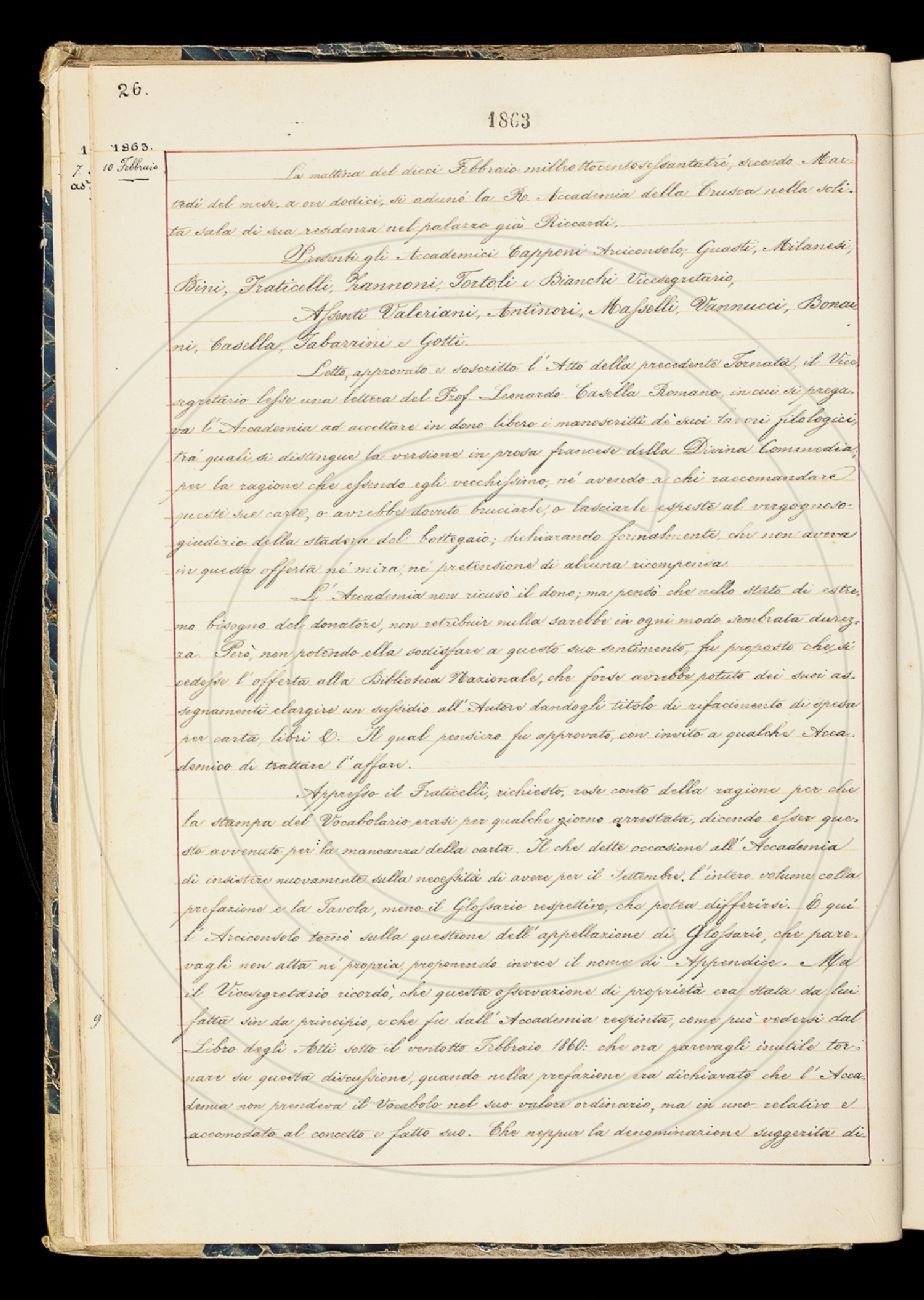 26.
1863
1863.
10 Febbraio
La mattina del dieci Febbraio milleottocentosessantatrè, secondo Mar-
tedì del mese, a ore dodici, si adunò la R. Accademia della Crusca nella soli-
ta sala di sua residenza nel palazzo già Riccardi.
Presenti gli Accademici Capponi Arciconsolo, Guasti, Milanesi,
Bini, Fraticelli, Zannoni, Tortoli e Bianchi Vicesegretario,
Assenti Valeriani, Antinori, Masselli, Vannucci, Bonai
ni, Casella, Tabarrini e Gotti.
Letto, approvato e soscritto l'Atto della precedente Tornata, il Vice
segretario lesse una lettera del Prof. Leonardo Casella Romano, in cui si prega-
va l'Accademia ad accettare in dono libero i manoscritti de' suoi lavori filologici,
tra' quali si distingue la versione in prosa francese della Divina Commedia,
per la ragione che essendo egli vecchissimo, nè avendo a chi raccomandare
queste sue carte, o avrebbe dovuto bruciarle, o lasciarle esposte al vergognoso
giudizio della stadera del bottegaio; dichiarando formalmente, che non aveva
in questa offerta nè mira, nè pretensione di alcuna ricompensa.
L'Accademia non ricusò il dono; ma pensò che nello stato di estre-
mo bisogno del donatore, non retribuir nulla sarebbe in ogni modo sembrata durez-
za. Però, non potendo ella sodisfare a questo suo sentimento, fu proposto che si
cedesse l'offerta alla Biblioteca Nazionale, che forse avrebbe potuto dei suoi as-
segnamenti elargire un sussidio all'Autore dandogli titolo di rifacimento di spesa
per carta, libri &. Il qual pensiero fu approvato, con invito a qualche Acca-
demico di trattare l'affare.
Appresso il Fraticelli, richiesto, rese conto della ragione per che
la stampa del Vocabolario erasi per qualche giorno arrestata, dicendo esser que-
sto avvenuto per la mancanza della carta. Il che dette occasione all'Accademia
di insistere nuovamente sulla necessità di avere per il Settembre, l'intero volume colla
prefazione e la Tavola, meno il Glossario respettivo, che potea differirsi. E qui
l'Arciconsolo tornò sulla questione dell'appellazione di Glossario, che pare-
vagli non atta nè propria, proponendo invece il nome di Appendice. Ma
il Vicesegretario ricordò, che questa osservazione di proprietà era stata da lui
fatta sin da principio, e che fu dall'Accademia respinta, come può vedersi dal
Libro degli Atti sotto il ventotto Febbraio 1860: che ora parevagli inutile tor-
nare su questa discussione, quando nella prefazione era dichiarato che l'Acca-
demia non prendeva il Vocabolo nel suo valore ordinario, ma in uno relativo e
accomodato al concetto e fatto suo. Che neppur la denominazione suggerita di